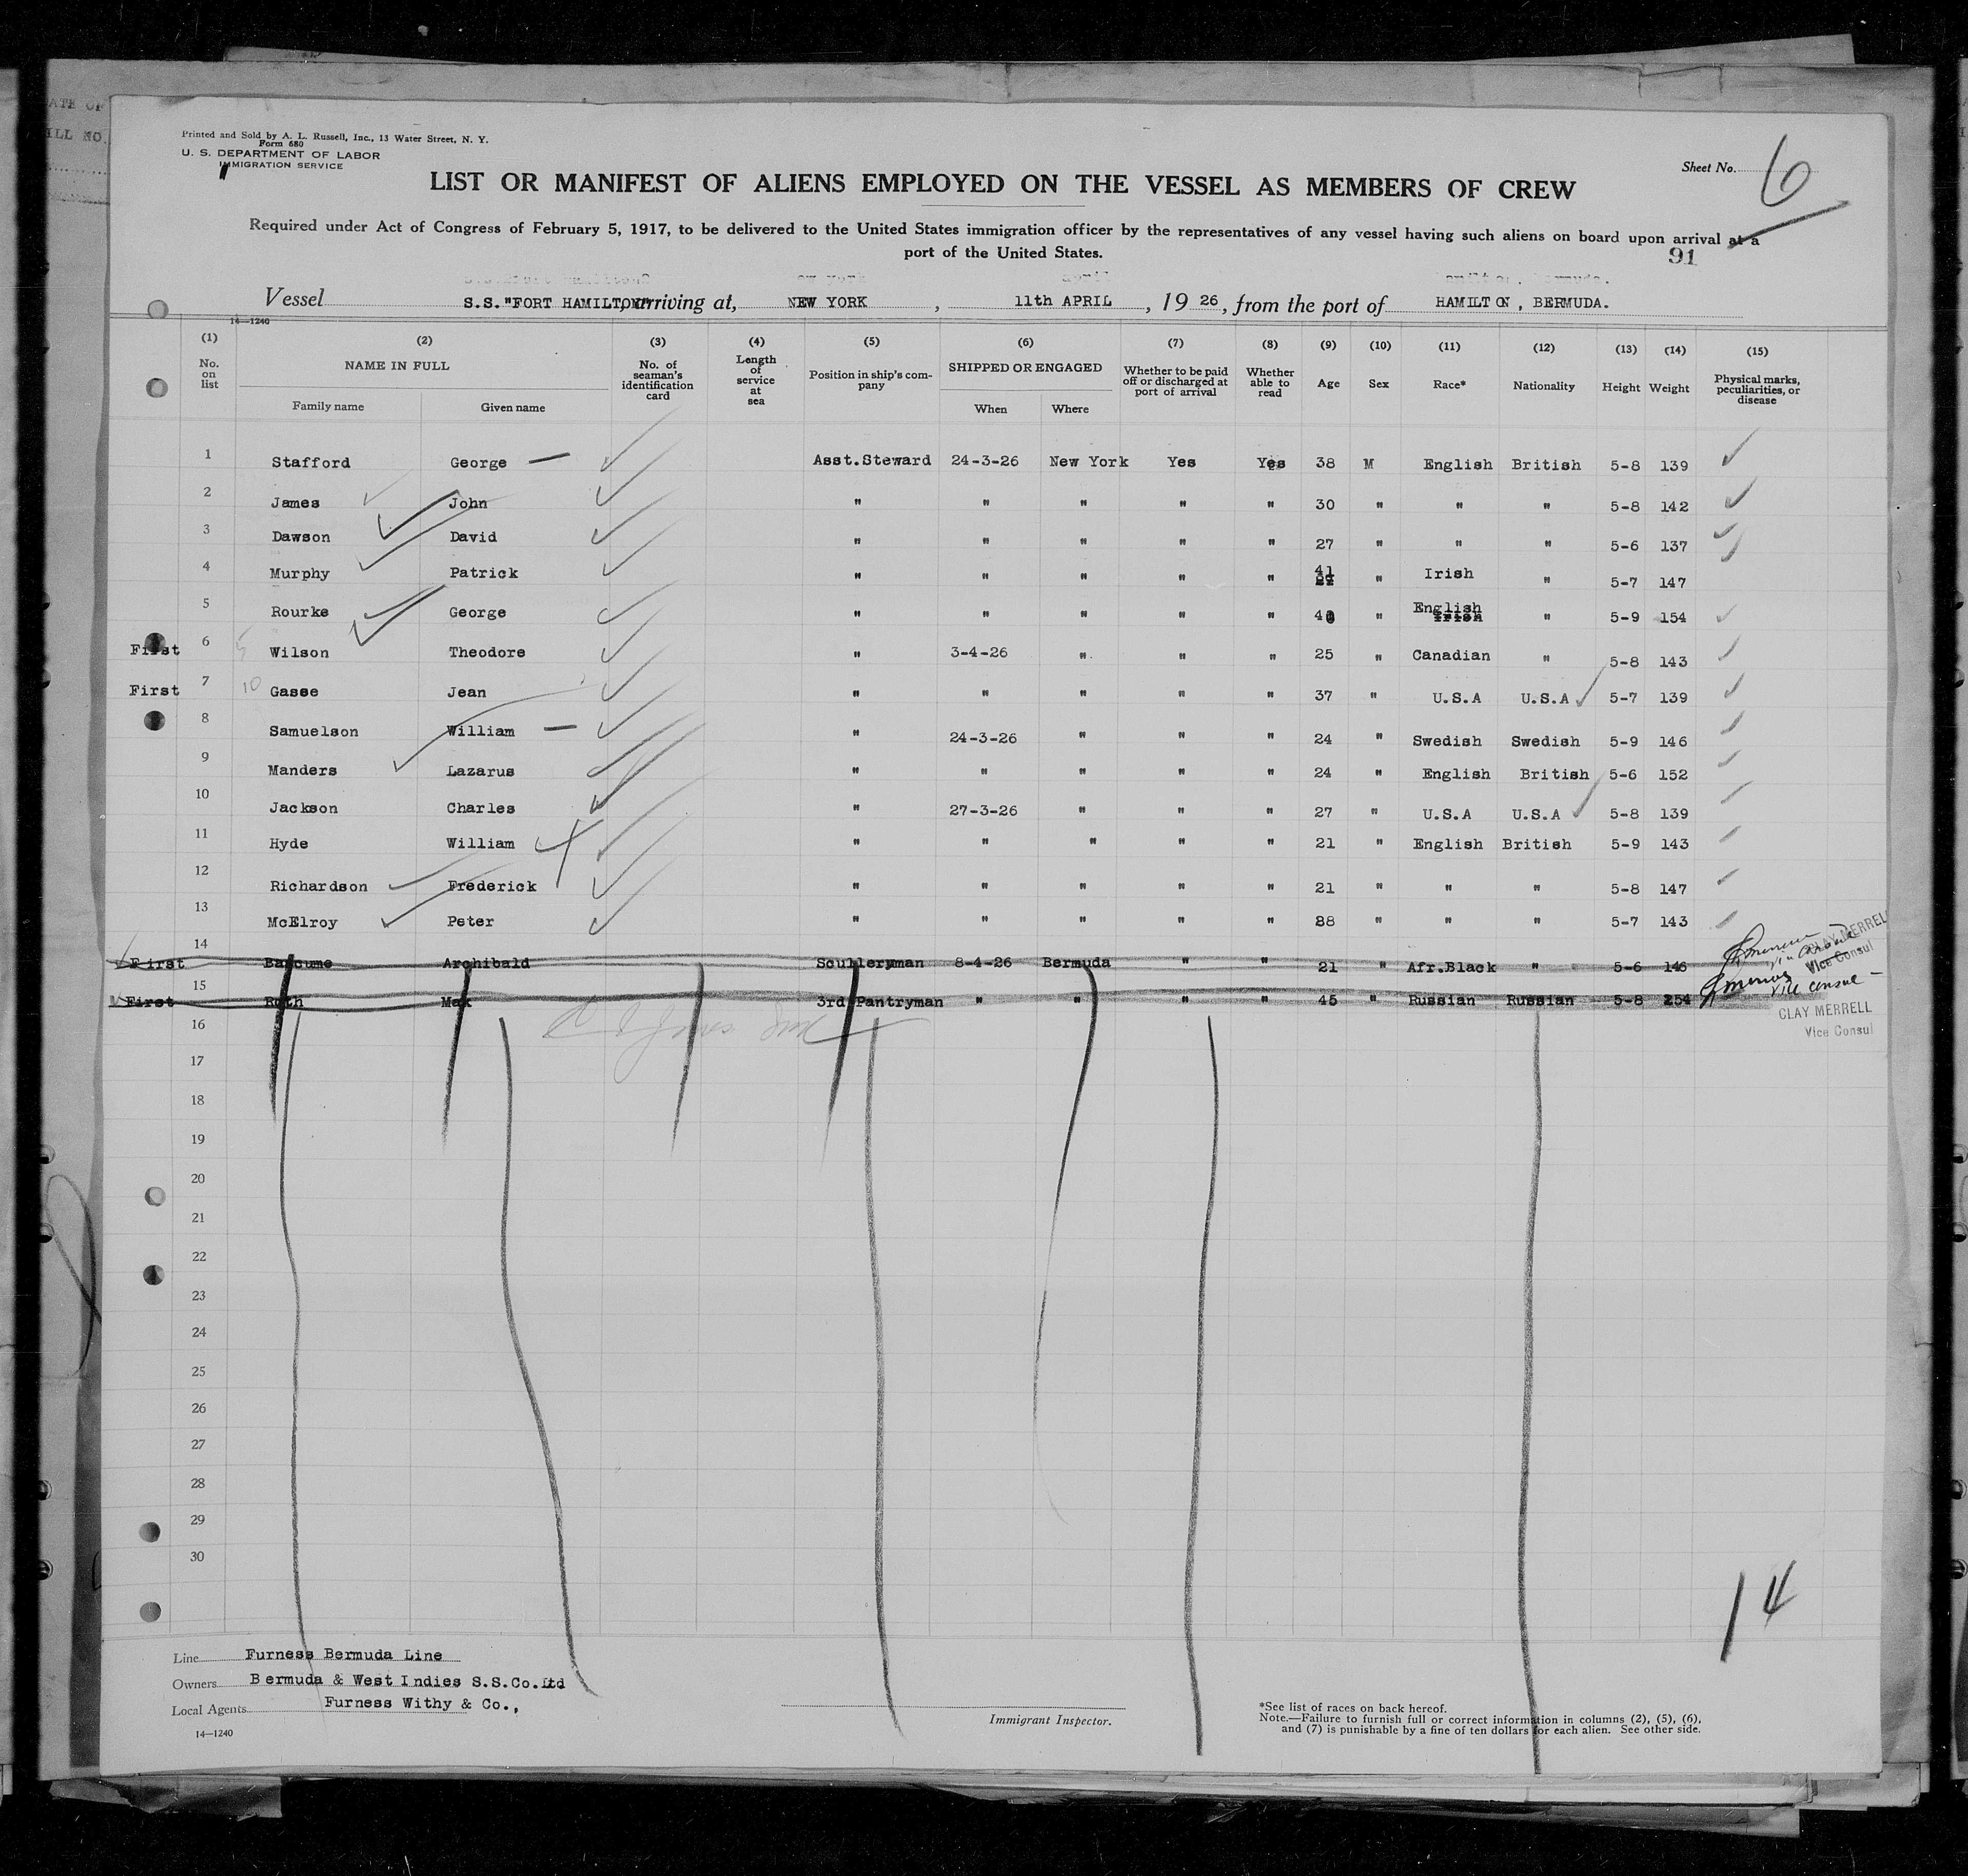 ATE OF
ILL NO.
Printed and Sold by A. L. Russell, Inc., 13 Water Street, N. Y.
Form 680
U. S. DEPARTMENT OF LABOR
IMMIGRATION SERVICE
Sheet No. 6
LIST OR MANIFEST OF ALIENS EMPLOYED ON THE VESSEL AS MEMBERS OF CREW
Required under Act of Congress of February 5, 1917, to be delivered to the United States immigration officer by the representatives of any vessel having such aliens on board upon arrival at a
port of the United States.
91
Vessel S.S."FORT HAMILTON", arriving at, NEW YORK, 11th APRIL, 1926, from the port of HAMILTON, BERMUDA.
14—1240
(1) (2) (3) (4) (5) (6) (7) (8) (9) (10) (11) (12) (13) (14) (15)
No. on list NAME IN FULL No. of seaman's identification card Length of service at sea Position in ship's company SHIPPED OR ENGAGED Whether to be paid off or discharged at port of arrival Whether able to read Age Sex Race* Nationality Height Weight Physical marks, peculiarities, or disease
Family name Given name When Where
1 Stafford George — Asst.Steward 24-3-26 New York Yes Yes 38 M English British 5-8 139
2 James John " " " " " 30 " " " 5-8 142
3 Dawson David " " " " " 27 " " " 5-6 137
4 Murphy Patrick " " " " " 41 " Irish " 5-7 147
5 Rourke George " " " " " 4 " English Irish " 5-9 154
First 6 Wilson Theodore " 3-4-26 " " " 25 " Canadian " 5-8 143
First 7 10 Gasse Jean " " " " " 37 " U.S.A U.S.A 5-7 139
8 Samuelson William — " 24-3-26 " " " 24 " Swedish Swedish 5-9 146
9 Manders Lazarus " " " " " 24 " English British 5-6 152
10 Jackson Charles " 27-3-26 " " " 27 " U.S.A U.S.A 5-8 139
11 Hyde William " " " " " 21 " English British 5-9 143
12 Richardson Frederick " " " " " 21 " " " 5-8 147
13 McElroy Peter " " " " " 28 " " " 5-7 143
First 14 Archibald Sculleryman 8-4-26 Bermuda " " 21 " Afr.Black " 5-6 146
CLAY MERRELL
Vice Consul
First 15 Ruth Max 3rd Pantryman " " " " 45 " Russian Russian 5-8 254
Vice Consul
CLAY MERRELL
Vice Consul
16
17
18
19
20
21
22
23
24
25
26
27
28
29
30
14
Line Furness Bermuda Line
Owners Bermuda & West Indies S.S.Co.Ltd
Local Agents Furness Withy & Co.,
14—1240
Immigrant Inspector.
*See list of races on back hereof.
Note.—Failure to furnish full or correct information in columns (2), (5), (6),
and (7) is punishable by a fine of ten dollars for each alien. See other side.